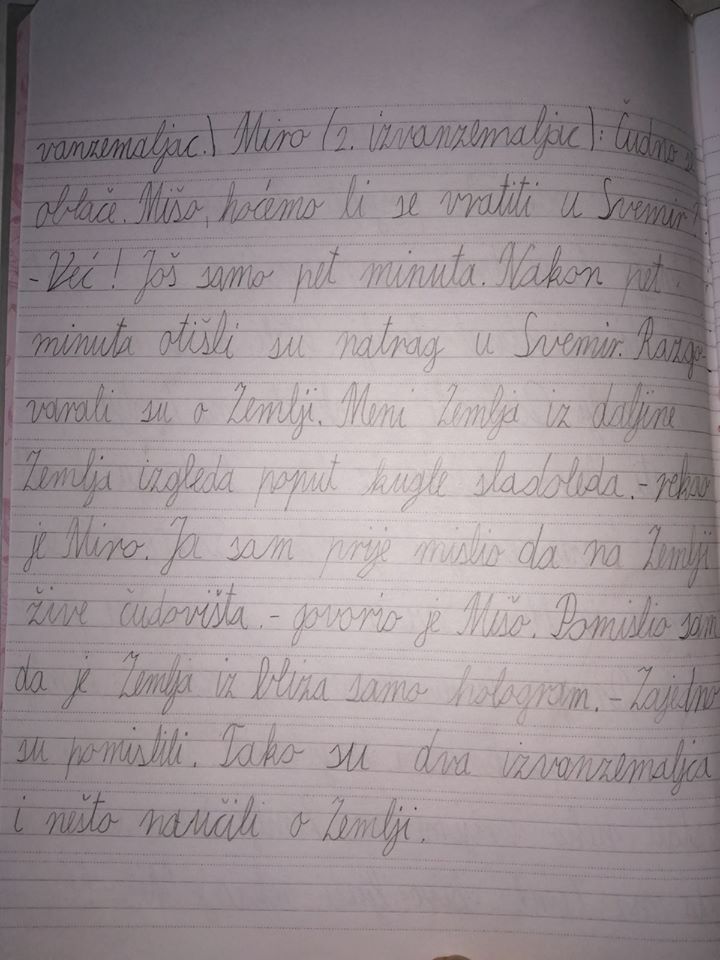 vanzemaljac.) Miro (2. izvanzemaljac): Čudno se
oblače. Mišo, hoćemo li se vratiti u Svemir?
- Već! Još samo pet minuta. Nakon pet
minuta otišli su natrag u Svemir. Razgo-
varali su o Zemlji. Meni Zemlja iz daljine
Zemlja izgleda poput kugle sladoleda. - rekao
je Miro. Ja sam prije mislio da na Zemlji
žive čudovišta. - govorio je Mišo. Pomislio sam
da je Zemlja iz bliza samo hologram. - Zajedno
su pomislili. Tako su dva izvanzemaljca
i nešto naučili o Zemlji.